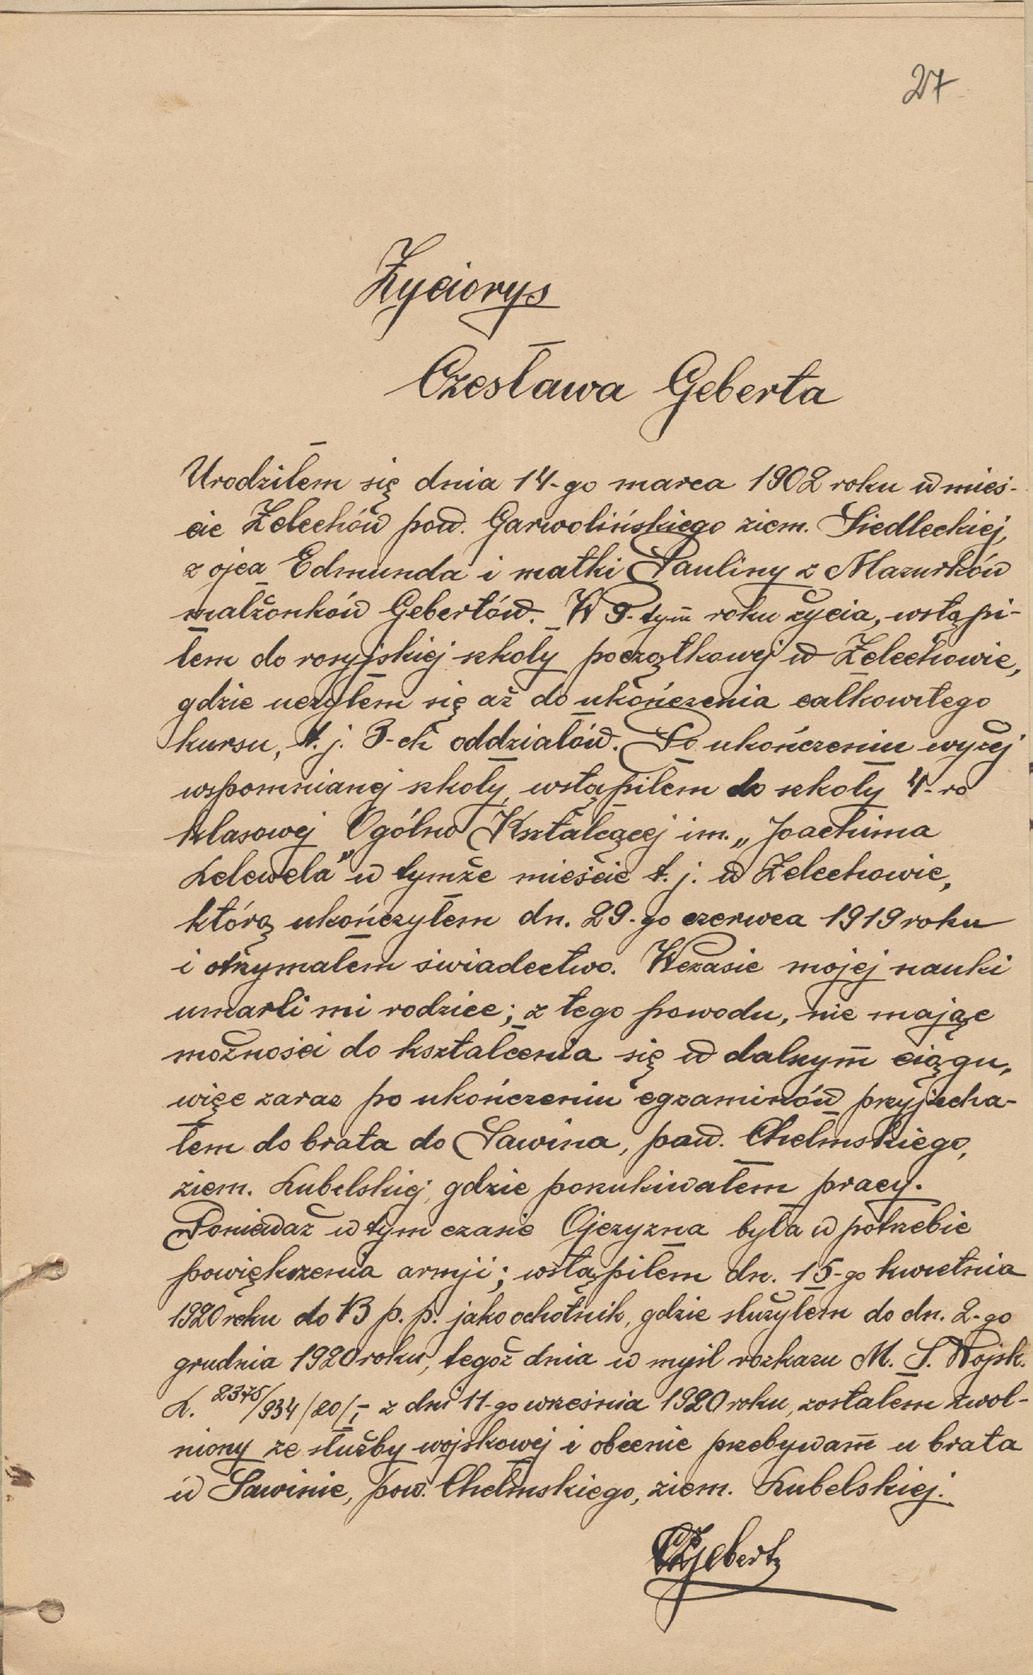 27
Życiorys
Czesława Geberta
Urodziłem się dnia 14-go marca 1902 roku w mieś-
cie Żelechów pow. Garwolińskiego ziem. Siedleckiej,
z ojca Edmunda i matki Pauliny z Mazurków
małżonków Gebertów. W 9-tym roku życia, wstąpi-
łem do rosyjskiej szkoły początkowej w Żelechowie,
gdzie uczyłem się aż do ukończenia całkowitego
kursu, t. j. 3-ch oddziałów. Po ukończeniu wyżej
wspomnianej szkoły, wstąpiłem do szkoły 4-ro
klasowej Ogólno Kształcącej im. „Joachima
Lelewela” w tymże mieście t. j. w Żelechowie,
którą ukończyłem dn. 29-go czerwca 1919 roku
i otrzymałem świadectwo. Wczasie mojej nauki
umarli mi rodzice; z tego powodu, nie mając
możności do kształcenia się w dalszym ciągu,
więc zaraz po ukończeniu egzaminów przyjecha-
łem do brata do Sawina, pow. Chełmskiego,
ziem. Lubelskiej, gdzie poszukiwałem pracy.
Ponieważ w tym czasie Ojczyzna była w potrzebie
powiększenia armji; wstąpiłem dn. 15-go kwietnia
1920 roku do 13 p. p. jako ochotnik, gdzie służyłem do dn. 2-go
grudnia 1920 roku, tegoż dnia w myśl rozkazu M. S. Wojsk.
L. 2375/934/20/I z dni 11-go września 1920 roku, zostałem zwol-
niony ze służby wojskowej i obecnie przebywam u brata
w Sawinie, pow. Chełmskiego, ziem. Lubelskiej.
CzGebert